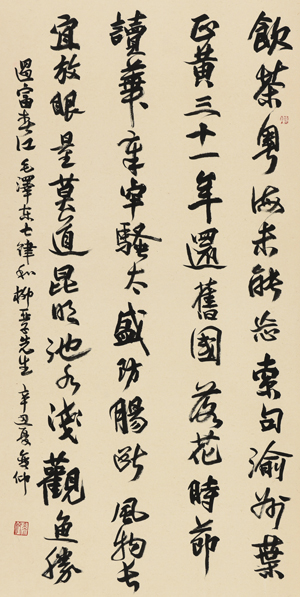 飲茶粵海未能忘索句渝州葉
正黃三十一年還舊國落花時節
讀華章牢騷太盛防腸斷風物长
宜放眼量莫道昆明池水淺觀魚勝
過富春江 毛澤东七律和柳亚子先生 辛丑夏